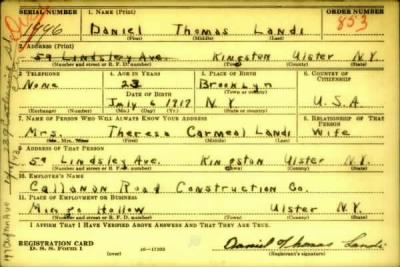 SERIAL NUMBER 1. NAME (Print) ORDER NUMBER
1896 Daniel Thomas Landi 853
(First) (Middle) (Last)
2. ADDRESS (Print)
59 Lindsley Ave. Kingston Ulster N.Y.
(Number and street or R. F. D. number) (Town) (County) (State)
3. TELEPHONE 4. AGE IN YEARS 5. PLACE OF BIRTH 6. COUNTRY OF CITIZENSHIP
None 23 Brooklyn
DATE OF BIRTH (Town or county)
July 6 1917 N Y U.S.A
(Exchange) (Number) (Mo.) (Day) (Yr.) (State or country)
7. NAME OF PERSON WHO WILL ALWAYS KNOW YOUR ADDRESS 8. RELATIONSHIP OF THAT PERSON
Mrs. Theresa Carmeal Landi Wife
(Mr., Mrs., Miss) (First) (Middle) (Last)
9. ADDRESS OF THAT PERSON
59 Lindsley Ave. Kingston Ulster N.Y.
(Number and street or R. F. D. number) (Town) (County) (State)
10. EMPLOYER'S NAME
Callanan Road Construction Co.
11. PLACE OF EMPLOYMENT OR BUSINESS
Hollow Ulster N.Y.
(Number and street or R. F. D. number) (Town) (County) (State)
I AFFIRM THAT I HAVE VERIFIED ABOVE ANSWERS AND THAT THEY ARE TRUE.
REGISTRATION CARD
D. S. S. Form 1 (over) 16-17105 Daniel Thomas Landi
(Registrant's signature)